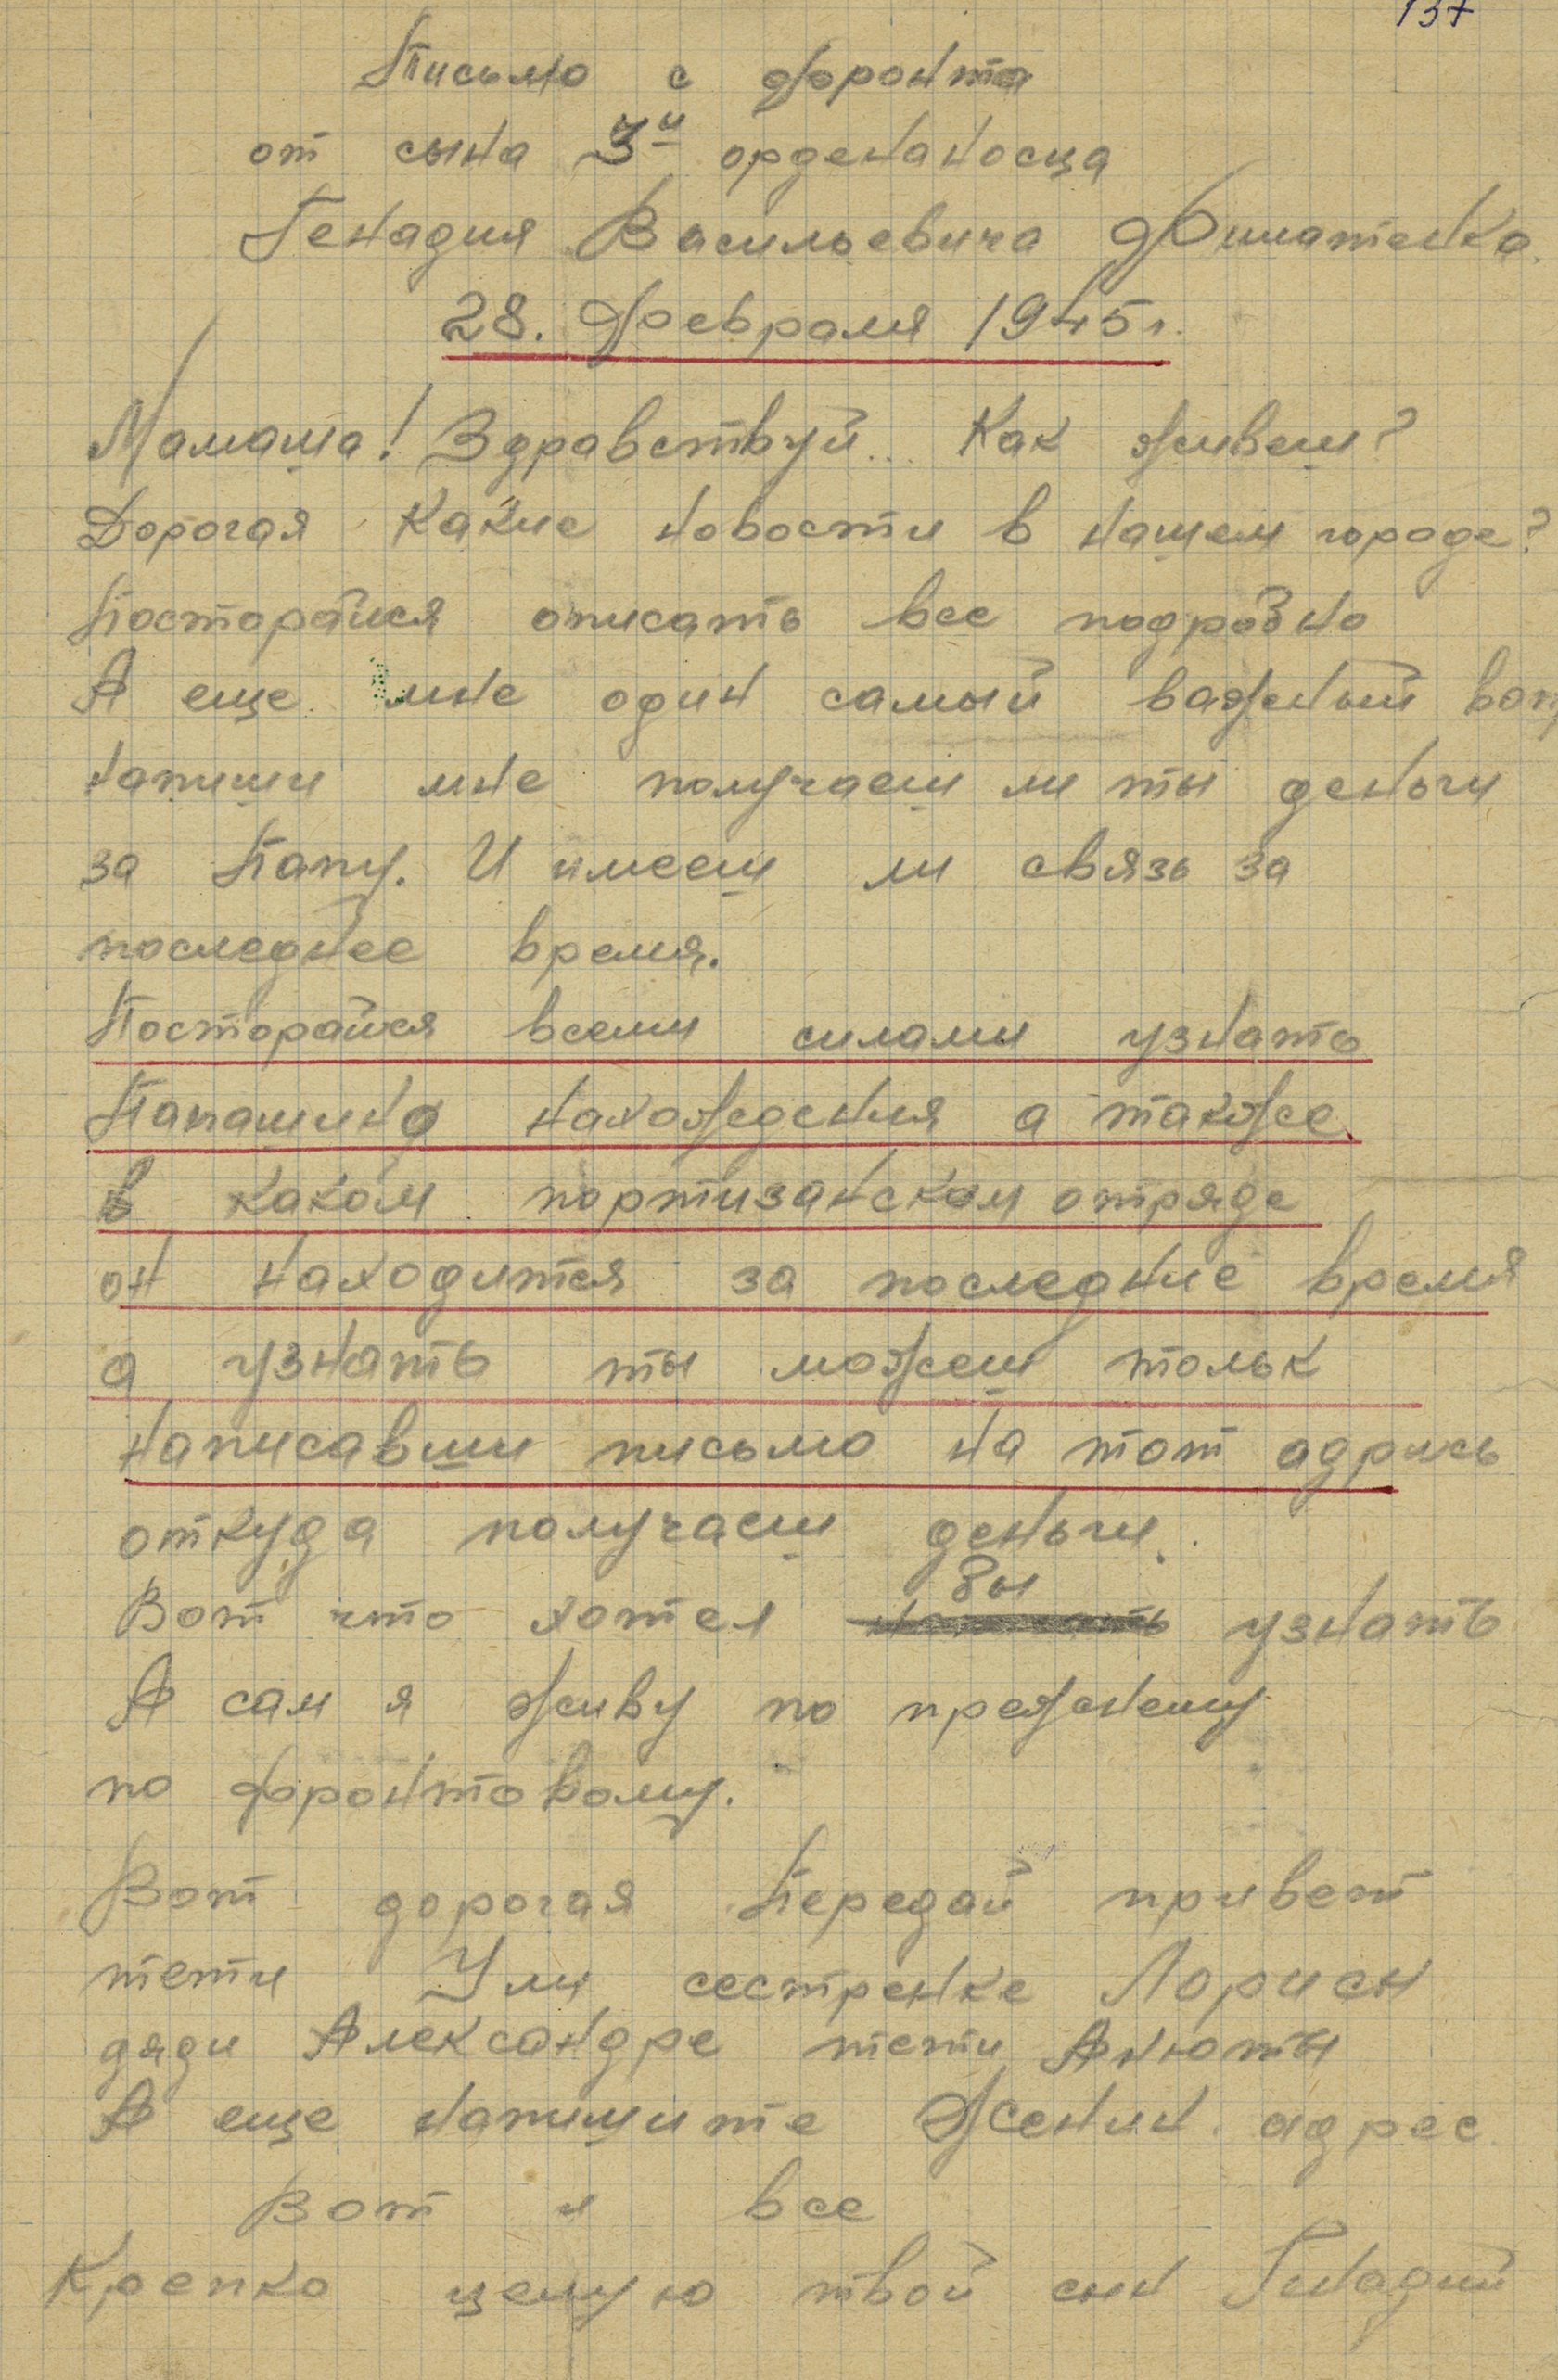 137
Письмо с фронта
от сына 3й орденаносца
Генадия Васильевича
28. Февраля 1945 г.
Мамаша! Здравствуй... Как живеш?
Дорогая Какие новости в нашем городе?
Посторайся описать все подробно
А еще мне один самый важный воп
напиши мне получаеш ли ты деньги
за Папу. И имееш ли связь за
последнее время.
Посторайся всеми силами узнать
Папашино нахождения а также
в каком портизанском отряде
он находится за последние время
а узнать ты можеш тольк
написавши письмо на тот адрись
откуда получаеш деньги.
бы
Вот что хотел узнать
А сам я живу по прежнему
по фронтовому.
Вот дорогая Передай привет
тети Ули сестренке Лорисы
дяди Александре тети Анюты
А еще напишите Женин адрес
Вот и все
Крепко целую твой сын Генадий